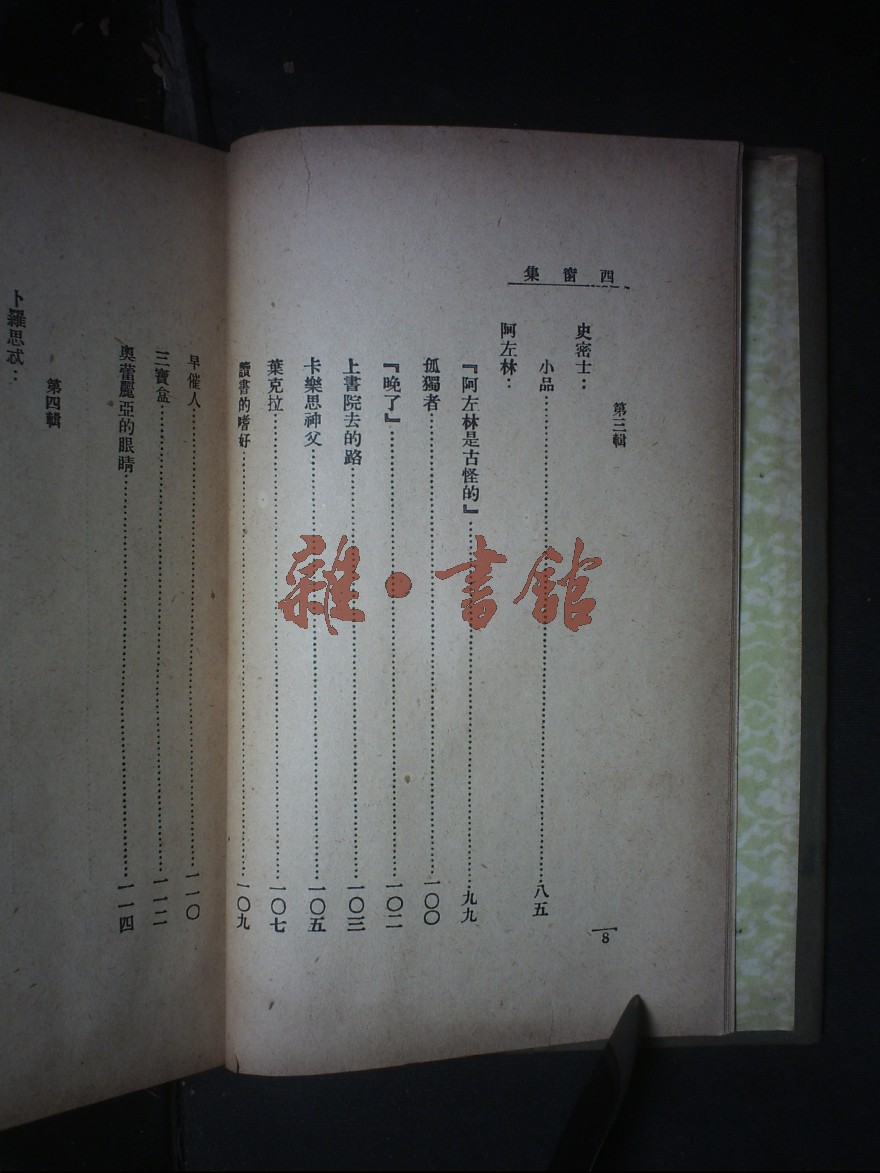 西窗集
第三輯
史密士：
小品…………八五
阿左林：
『阿左林是古怪的』…………九九
孤獨者…………一〇〇
『晚了』…………一〇二
上書院去的路…………一〇三
卡樂思神父…………一〇五
葉克拉…………一〇七
讀書的嗜好…………一〇九
8
早催人…………一一〇
三寶盒…………一一二
奧蕾麗亞的眼睛…………一一四
第四輯
卜羅思忒：
雜·書館